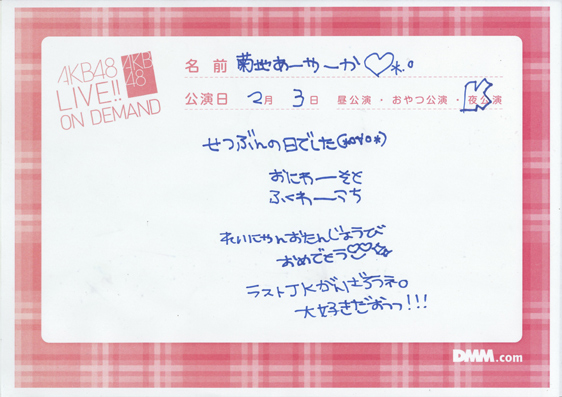 AKB48
LIVE!!
ON DEMAND
AKB
48
名前 菊地あーやーか♡*.°
公演日 2月 3日 昼公演・おやつ公演・夜公演
せつぶんの日でした
おにわーそと
ふくわーうち
れいにゃんおたんじょうび
おめでとう♡♡
ラストJKがんばろうね。
大好きだおっっ!!!
DMM.com